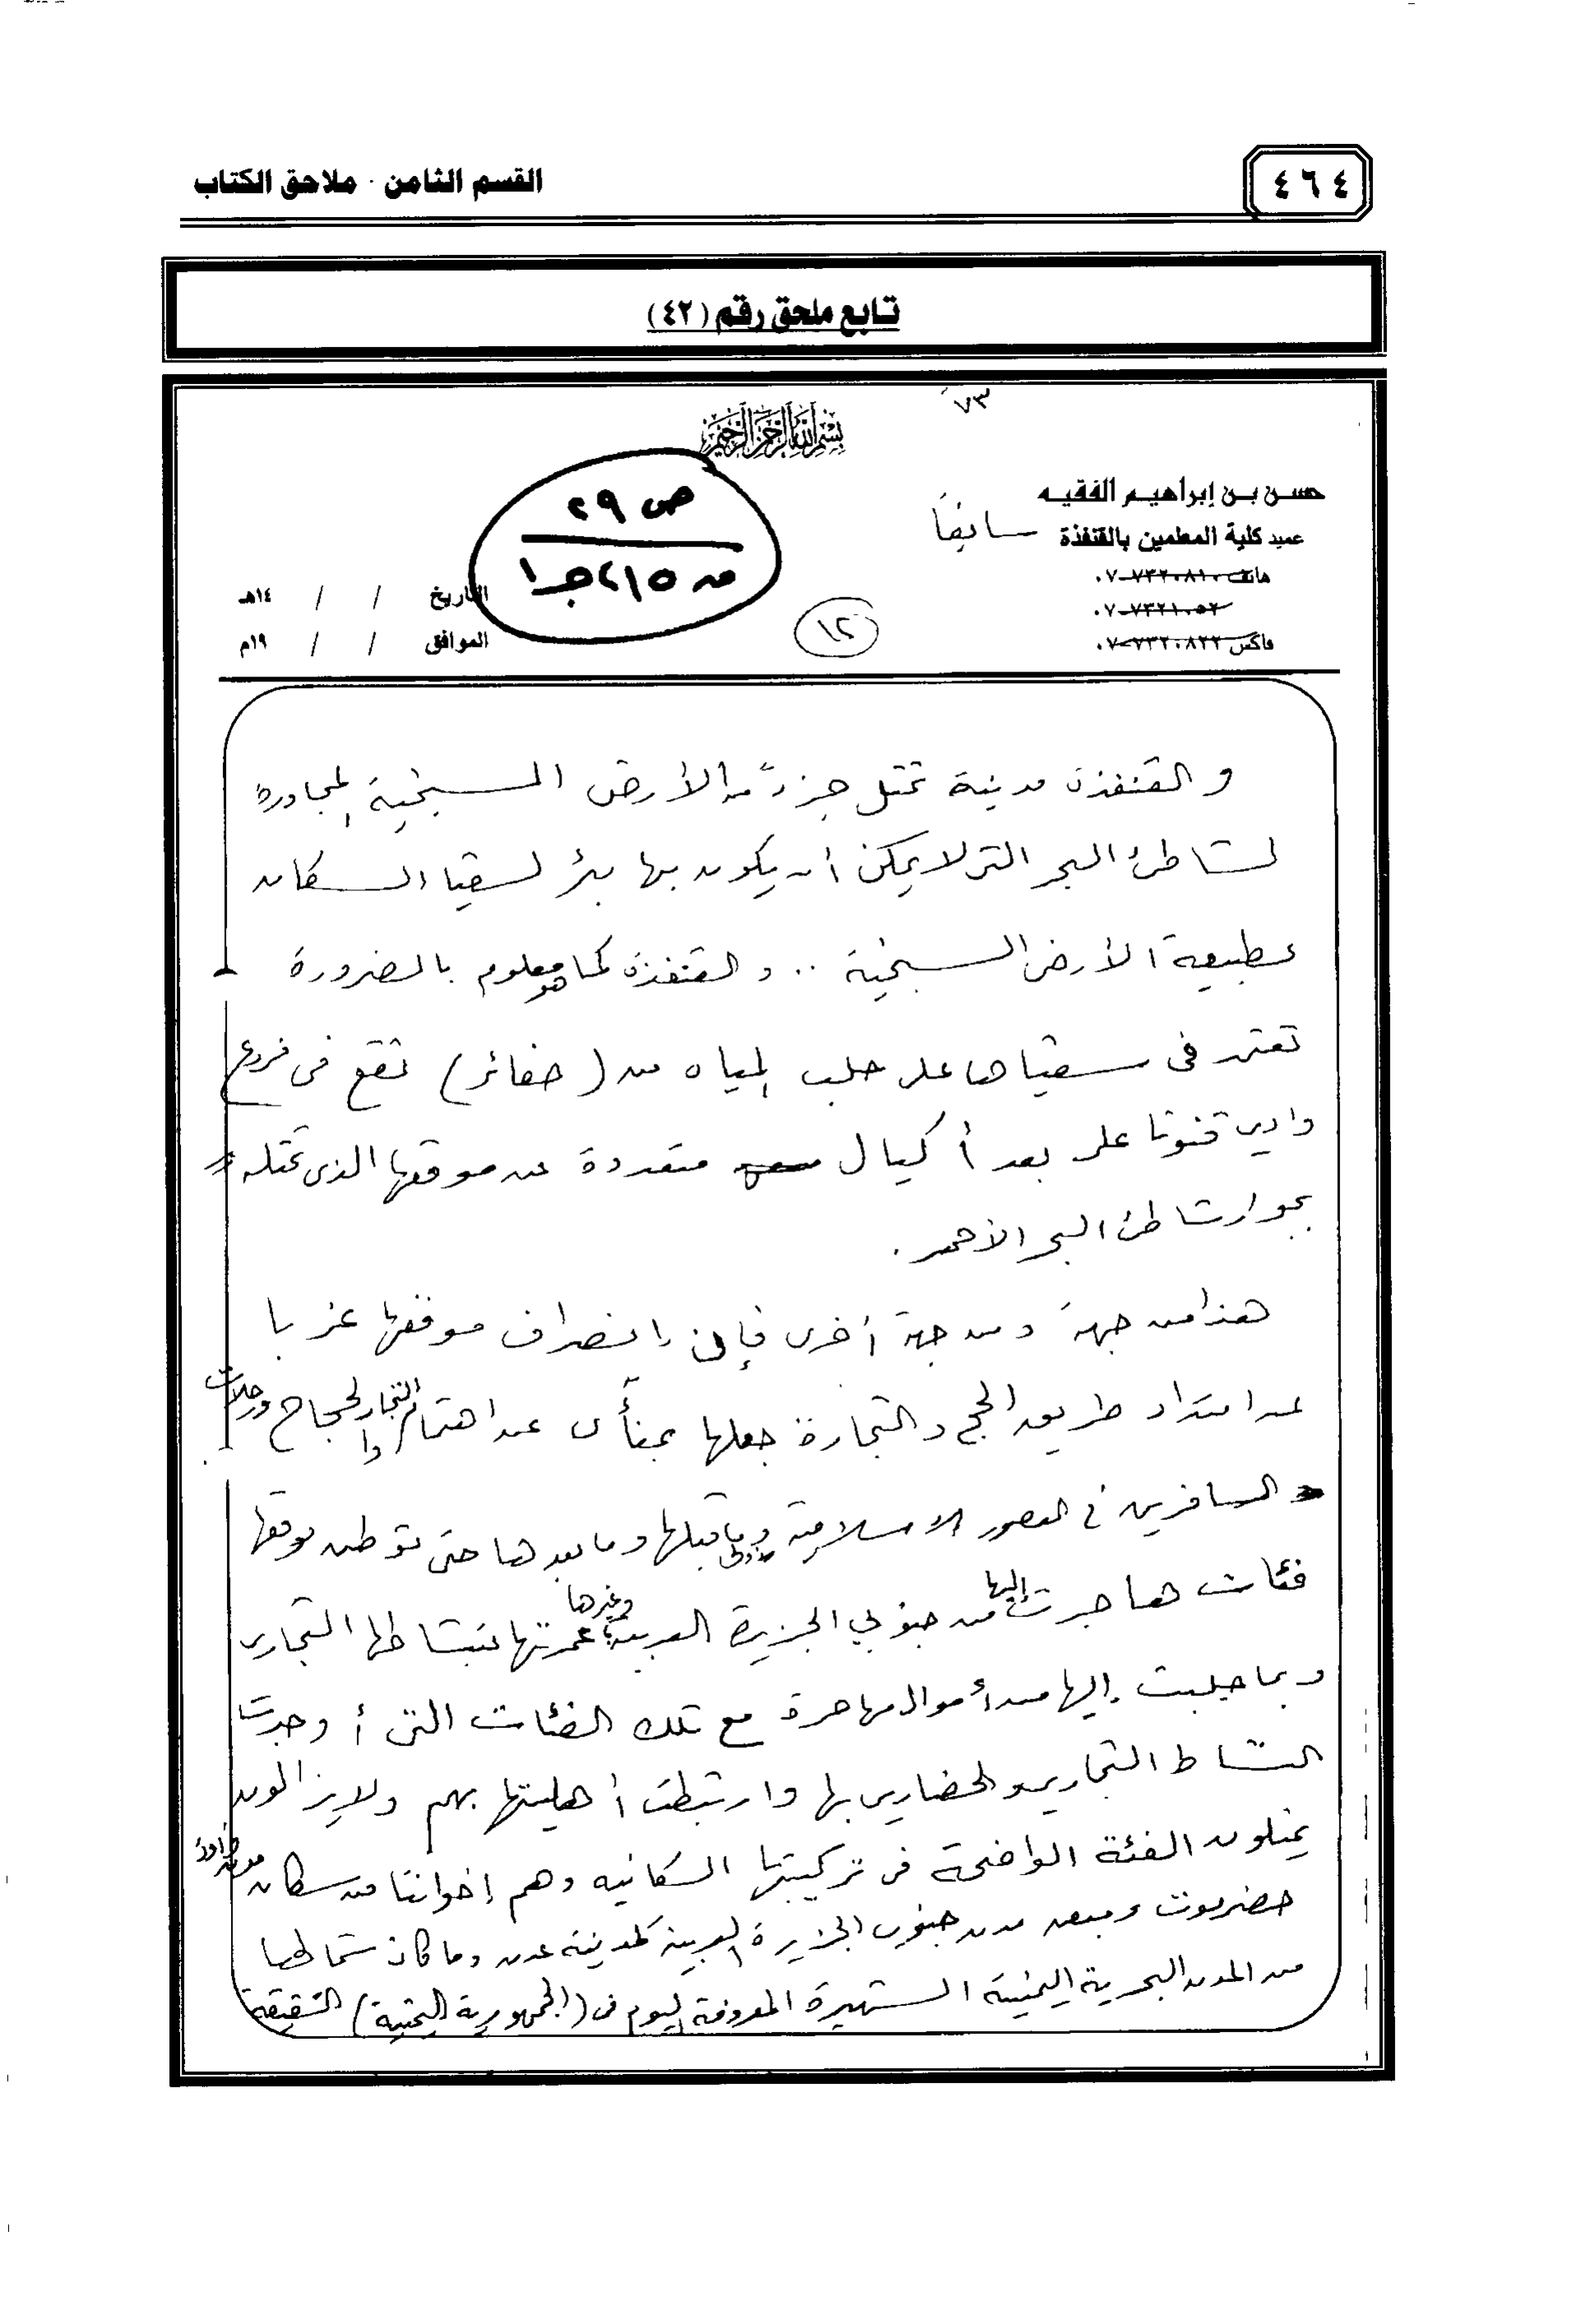 ٤٦٤
القسم الثامن - ملاحق الكتاب
تابع ملحق رقم (٤٢)
٧٣
بسم الله الرحمن الرحيم
حسن بن إبراهيم الفقيه
عميد كلية المعلمين بالقنفذة سابقاً
هاتف ٧٣٢٠٨١٠-٠٧
٧٣٢١٠٥٢-٠٧
فاكس ٧٣٢٠٨٢٢-٠٧
ص ٢٩
من ٢١٥ جـ ١
١٢
التاريخ / / ١٤هـ
الموافق / / ١٩م
والقنفذة مدينة تمثل جزءً من الأرض السبخية المجاورة
لشاطئ البحر التى لا يمكن أن يكون بها بئر لسقيا السكان
لطبيعة الأرض السبخية .. والقنفذة كما هو معلوم بالضرورة
تعتمد فى سقياها على جلب المياه من (حفائر) تقع فى فروع
وادى قنونا على بعد أكيال متعددة عن موقعها الذى تحتله
بجوار شاطئ البحر الأحمر .
هذا من جهة ومن جهة أخرى فإن إنصراف موقعها غربا
عن امتداد طريق الحج والتجارة جعلها بمنأى عن اهتمام التجار والحجاج ورحلات
المسافرين فى العصور الاسلامية وما قبلها وما بعدها حتى توطن موقعها
فئات هاجرت إليها من جنوبي الجزيرة العربية وغيرها عمرتها بنشاطها التجارى
وبما جلبت إليها من أموال مهاجرة مع تلك الفئات التى أوجدت
النشاط التجارى والحضارى بها وارتبطت أهليتها بهم ولا يزالون
يمثلون الفئة الواضحة فى تركيبتها السكانيه وهم إخواننا من سكان
حضرموت وبعض مدن جنوب الجزيرة العربية كمدينة عدن وما كان شمالها
من المدن البحرية اليمنية الشهيرة المعروفة اليوم فى (الجمهورية اليمنية) الشقيقة